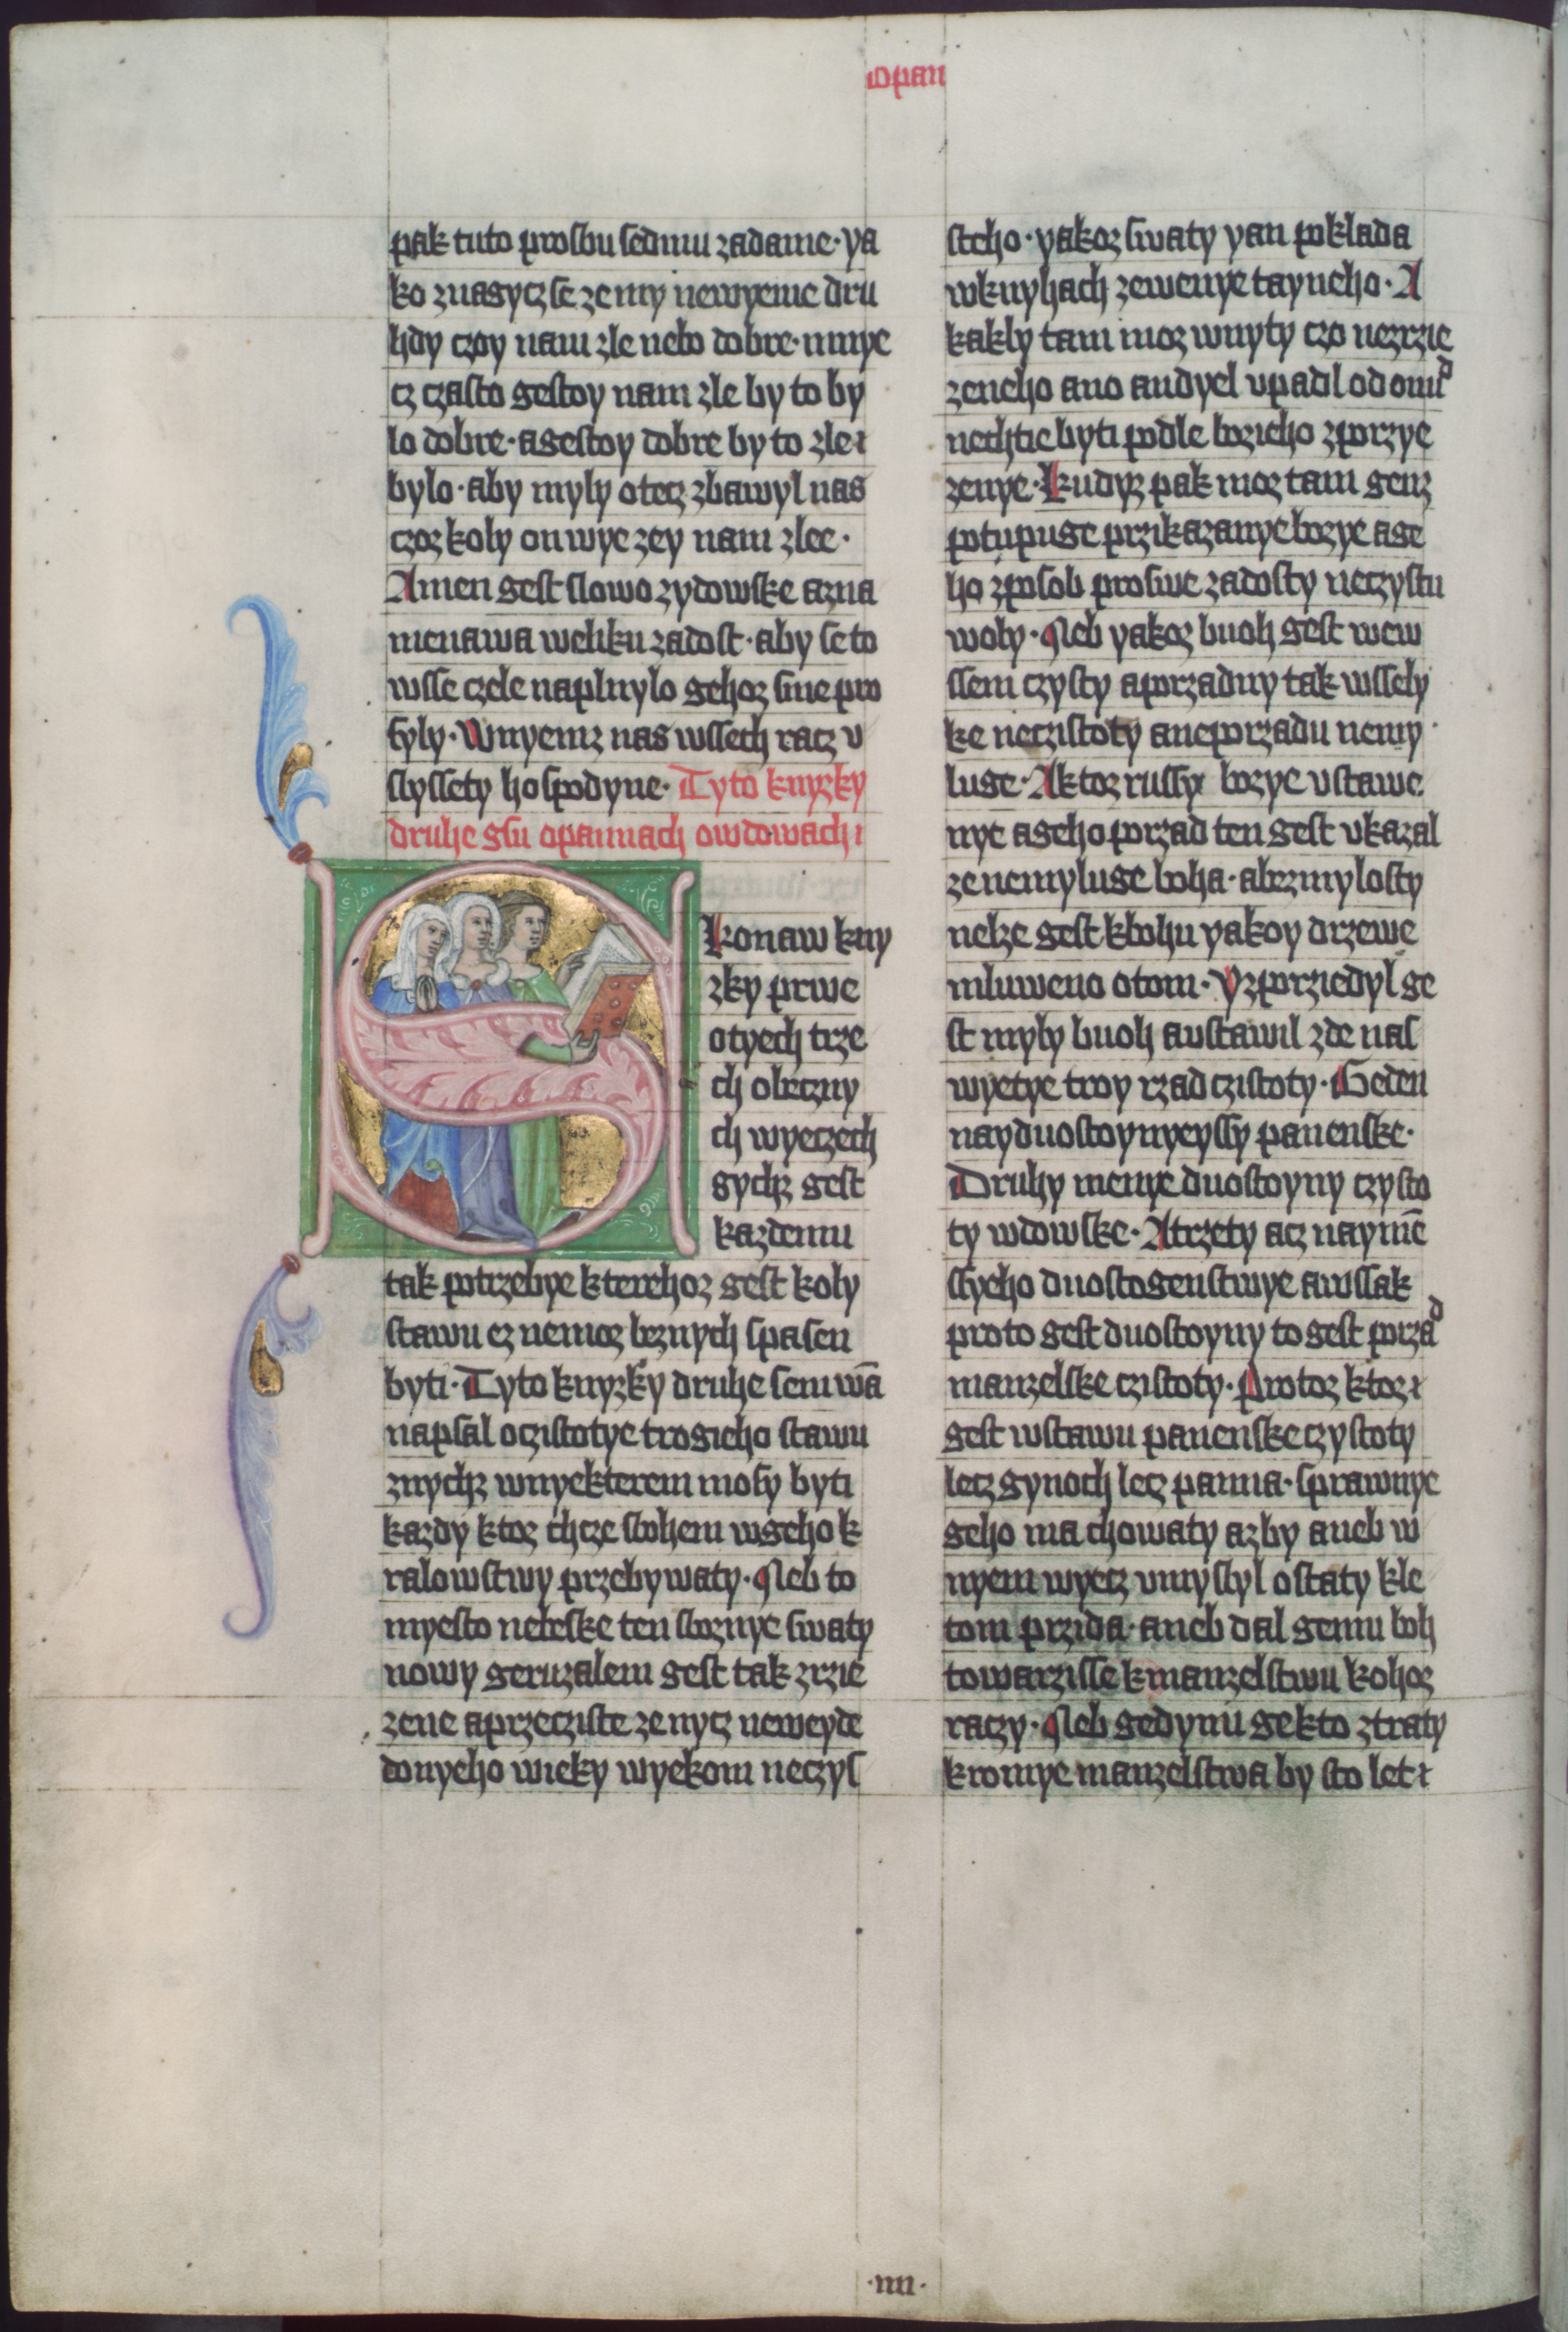 o pan
pak tuto prosbu sedmu zadame · ya
ko znagycz se ze my newyeme dru
hdy czoy nam zle nebo dobre · mnye
cz czasto gestoy nam zle by to by
lo dobre · a gestoy dobre by to zle
bylo · aby myly otecz zbawyl nas
czoz koly on wye zey nam zlee ·
Amen gest slowo zydowske a zna
menawa weliku zadost · aby se to
wsse czele naplnylo gehoz sme pro
syly · Wnyemz nas wssech racz v
slyssety hospodyne · Tyto knyzky
druhe gsu o pannach o wdowach
S
konaw kny
zky prwe
o tyech trze
ch obeczny
ch wyeczech
gychz gest
kazdemu
tak potrzebye kterehoz gest koly
stawu cz nemoz beznych spasen
byti · Tyto knyzky druhe sem wā
napsal o czistotye trogieho stawu
znychz wnyekterem mosy byti
kazdy ktoz chcze sbohem wgeho k
ralowstwy przebywaty · Neb to
myesto nebeske ten sboznye swaty
nowy geruzalem gest tak zrzie
zene a przecziste ze nycz neweyde
donyeho wieky wyekom neczys
steho · yakoz swaty yan poklada
wknyhach zewenye tayneho · A
kakly tam moz wnyty czo nezrzie
zeneho ano andyel vpadl od onud
nechtie byti podle bozieho zporzye
zenye · kudyz pak moz tam genz
potupuge przikazanye bozye a ge
ho zposob pro swe zadosty neczystu
woly · Neb yakoz buoh gest wew
ssem czysty a porzadny tak wssely
ke neczistoty a neporzadu nemy
luge · A ktoz russy bozye vstawe
nye a geho porzad ten gest vkazal
ze nemyluge boha · a bez mylosty
nelze gest kbohu yakoy drzewe
mluweno o tom · Yzporziedyl ge
st myly buoh a vstawil zde nas
wyetye troy rzad czistoty · Geden
nayduostoynyeyssy panenske ·
Druhy menye duostoyny czysto
ty wdowske · A trzety acz naymē
ssyeho duostogenstwye a wssak
proto gest duostoyny to gest porzad
manzelske czistoty · Protoz ktoz
gest wstawu panenske czystoty
lecz gynoch lecz panna · sprawnye
geho ma chowaty azby aneb w
nyem wyecz vmyslyl ostaty kle
tom przida · aneb dal gemu boh
towarzisse kmanzelstwu kohoz
raczy · Neb gedynu gekto ztraty
kromye manzelstwa by sto let
· iiii ·